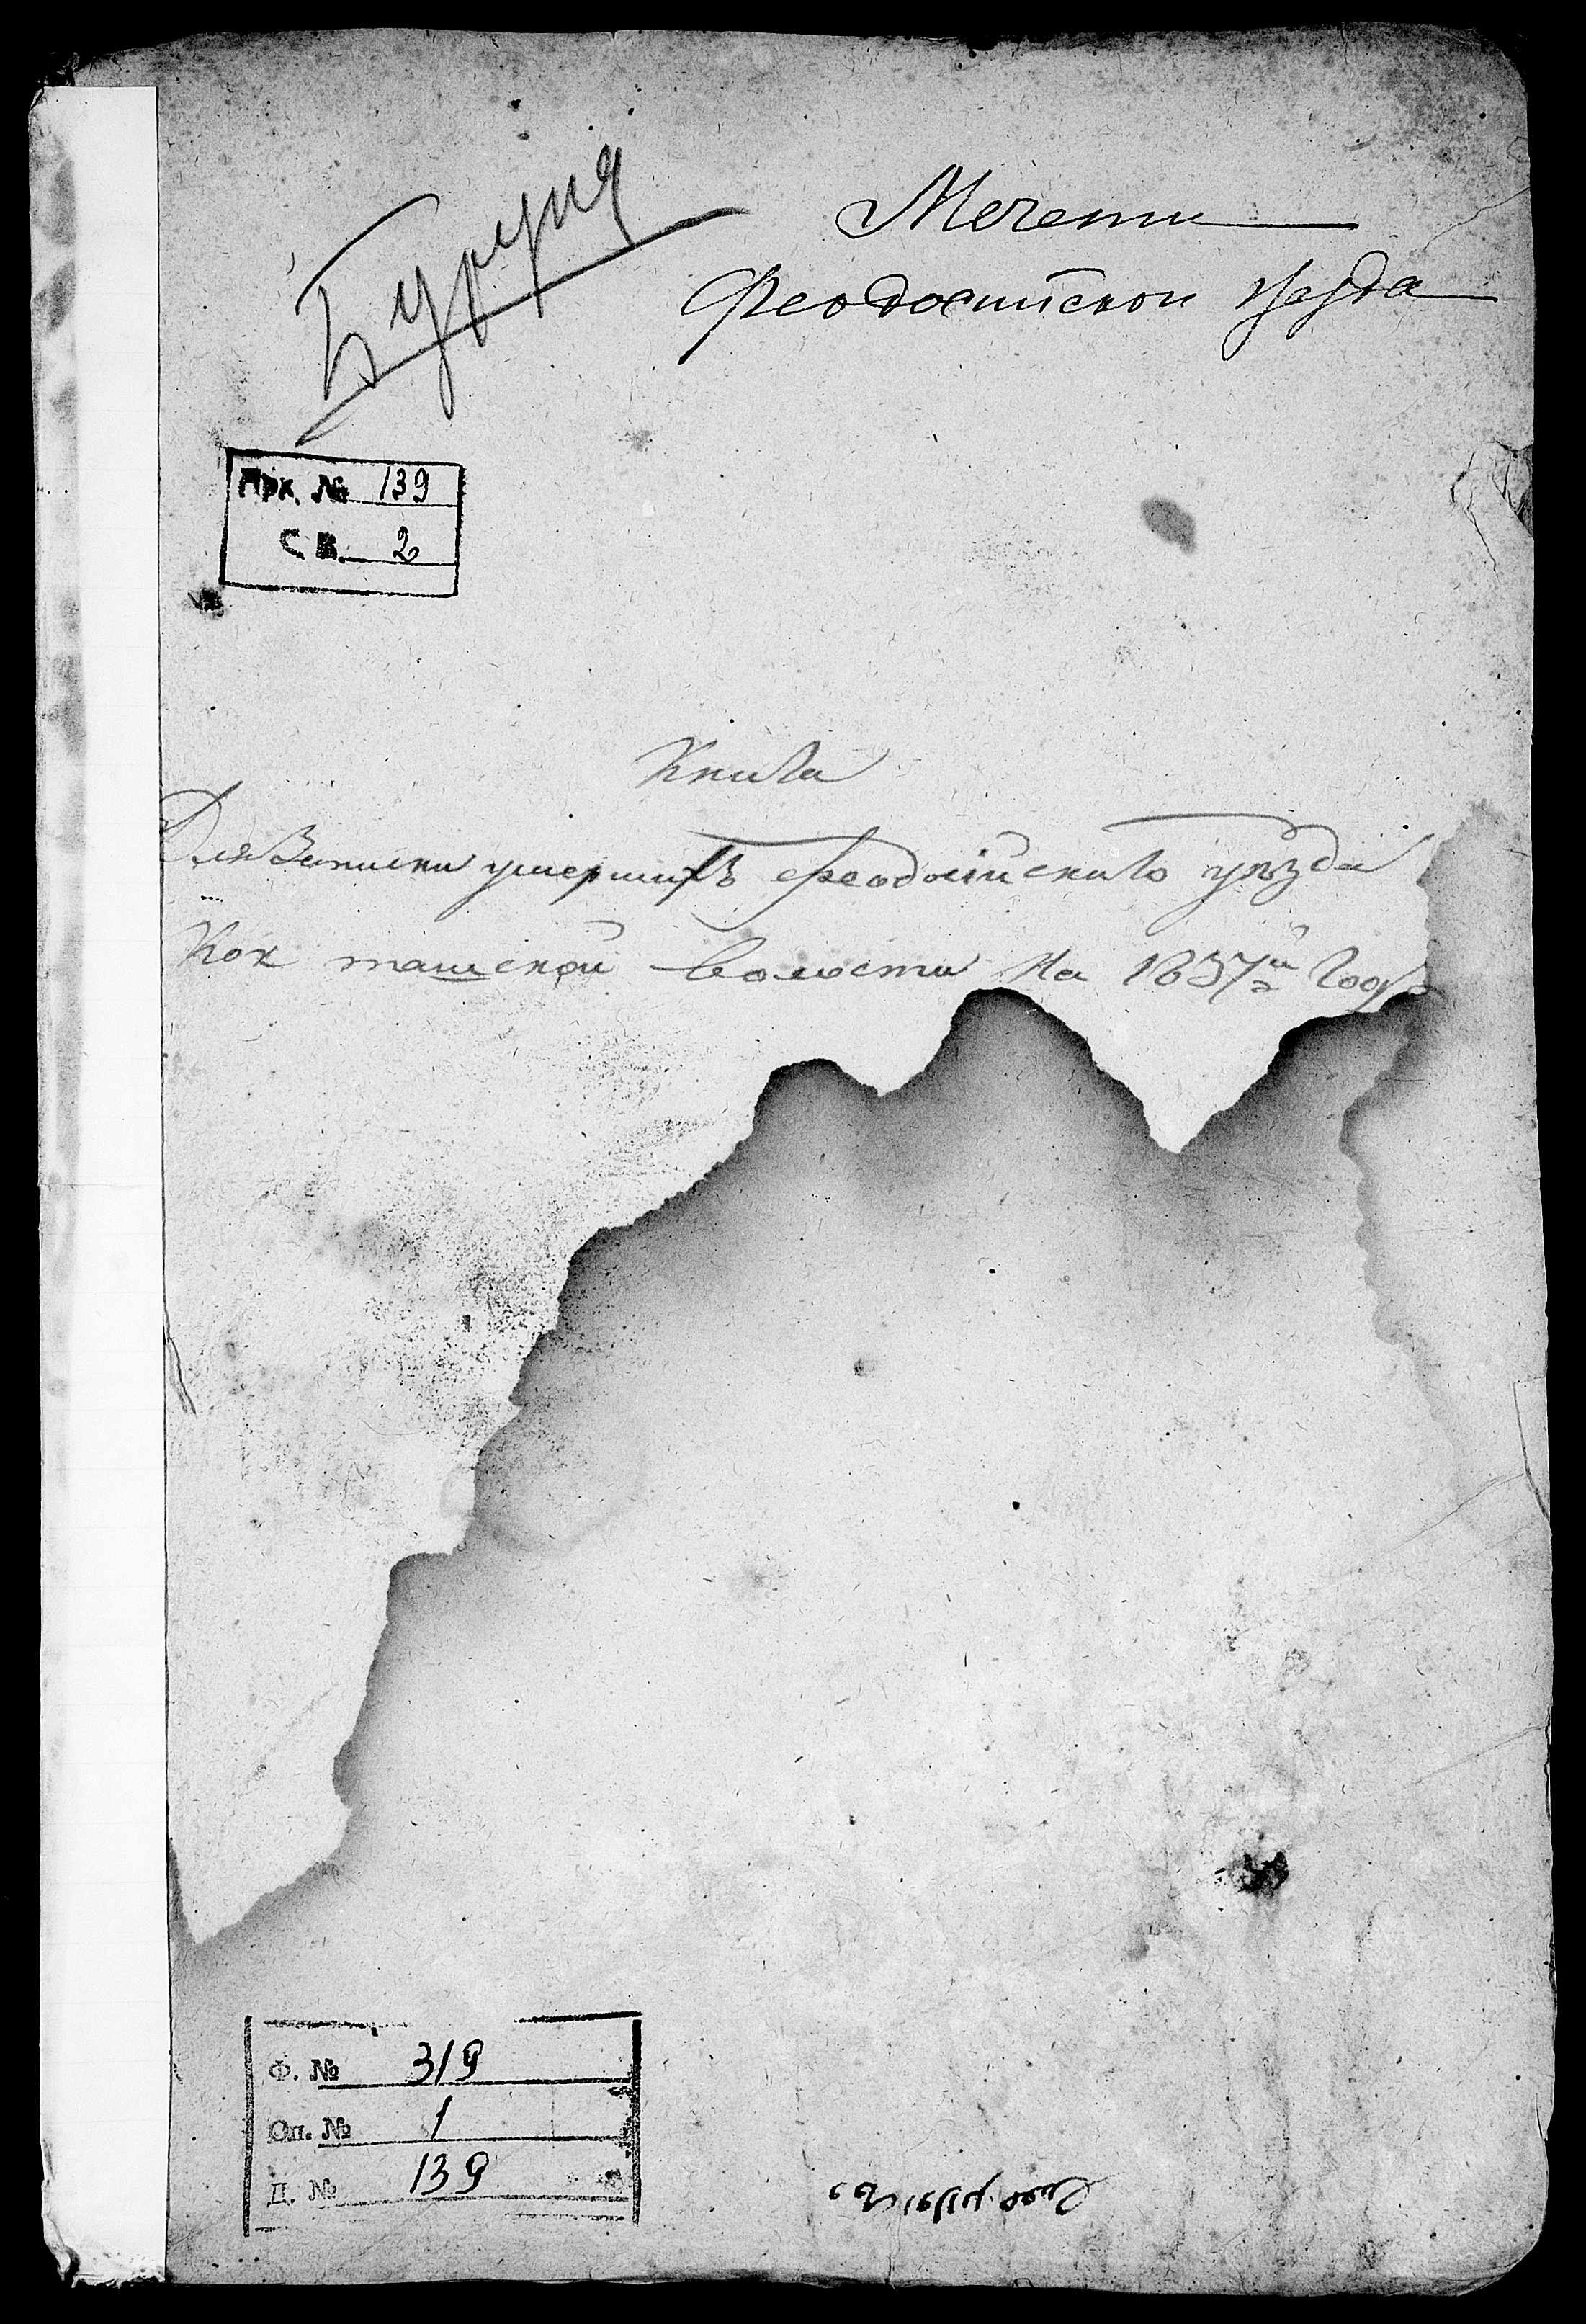 Бурундук
Мечети
Феодосийской уезда
Арх. № 139
Св. 2
Книга
Для Записки умершихъ Феодосійскаго уѣзда
Кок ташской волости На 1837й Годъ
Ф. № 319
Оп. № 1
Д. № 139